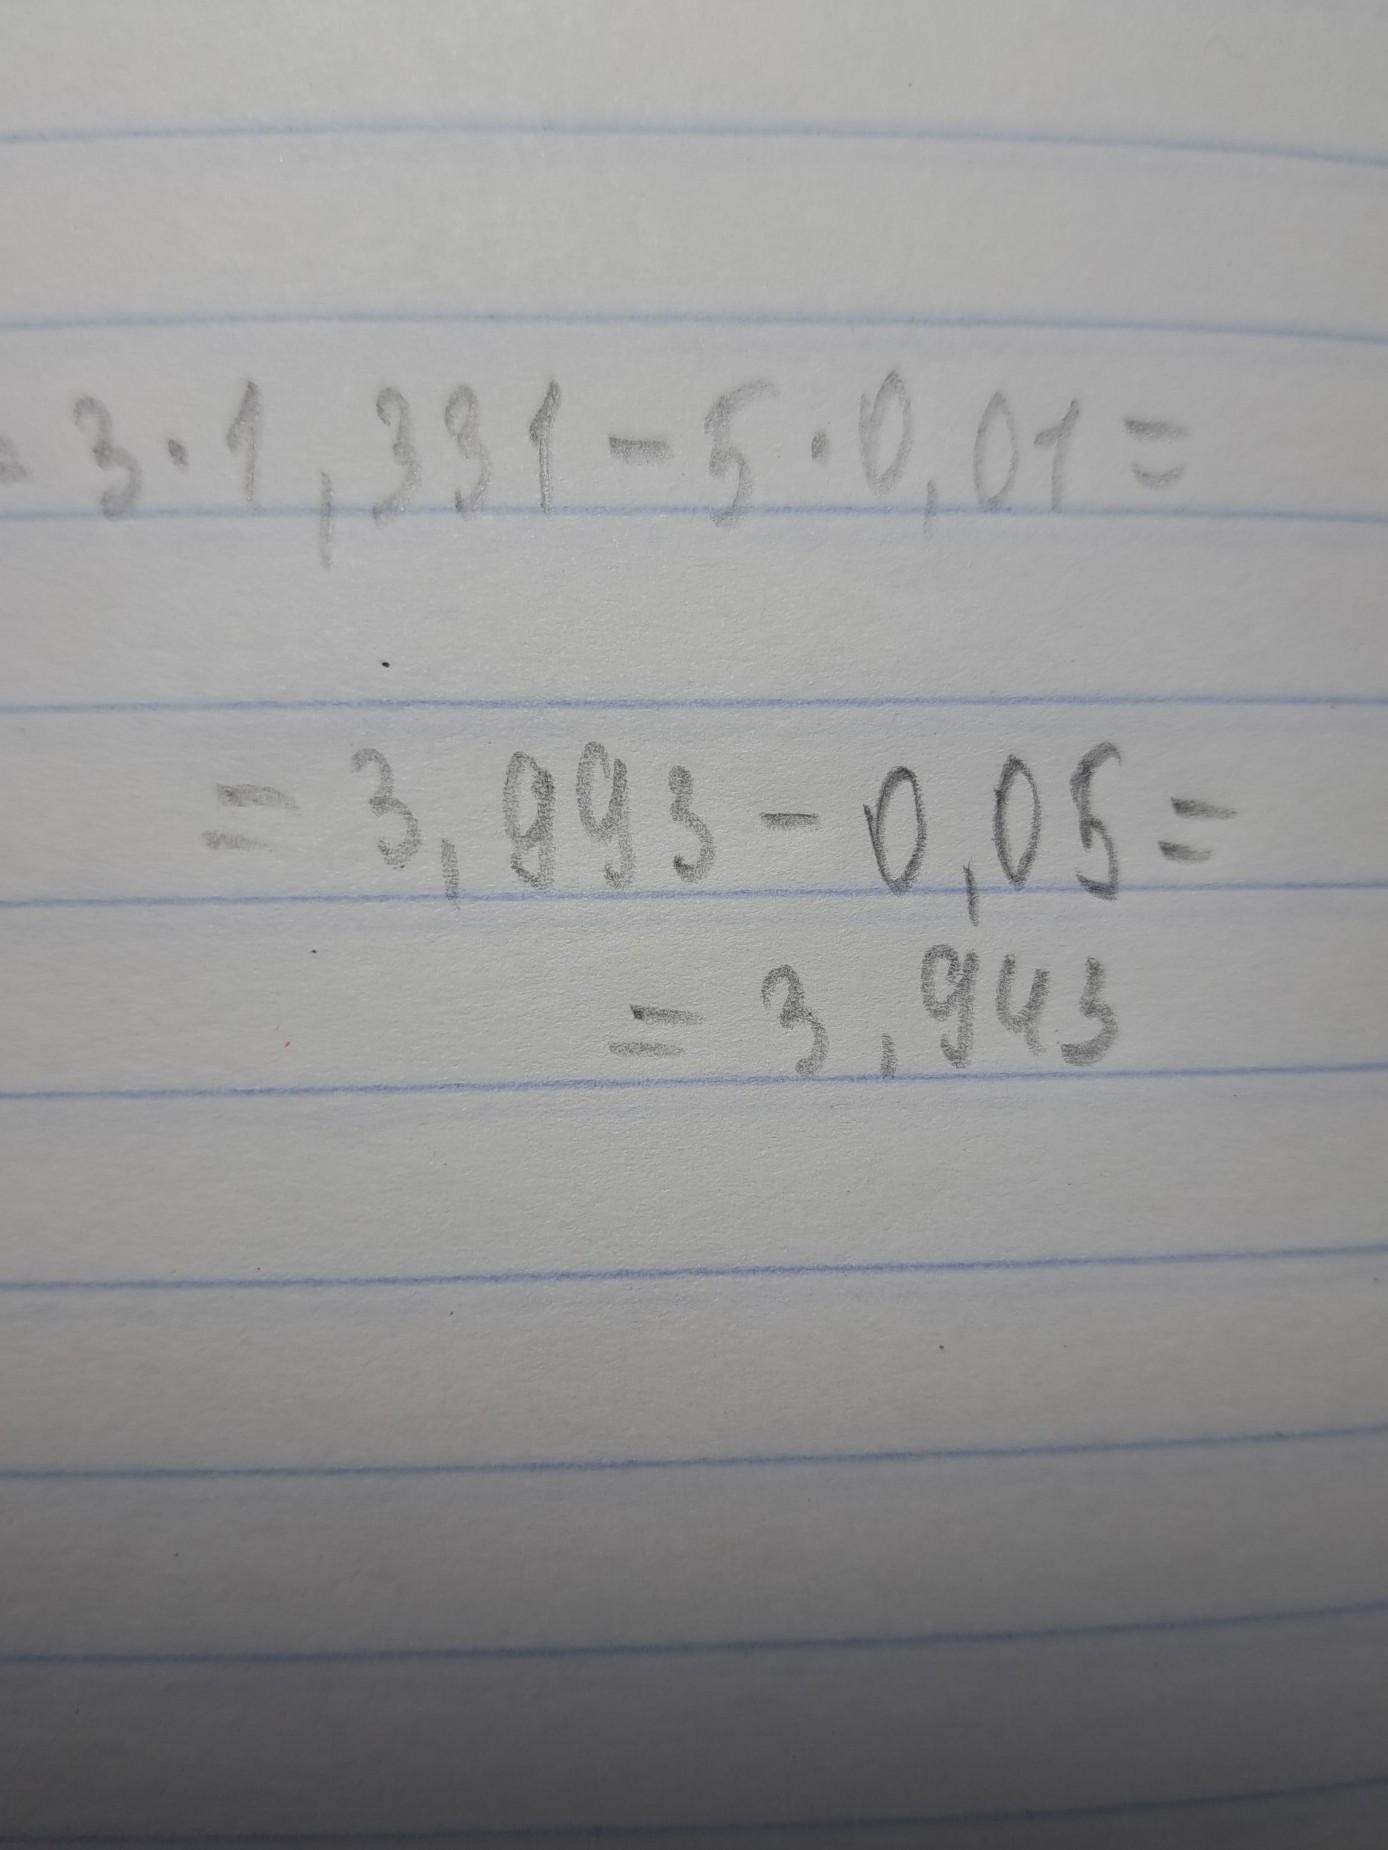 = 3 · 1,331 - 5 · 0,01 =
= 3,993 - 0,05 =
= 3,943